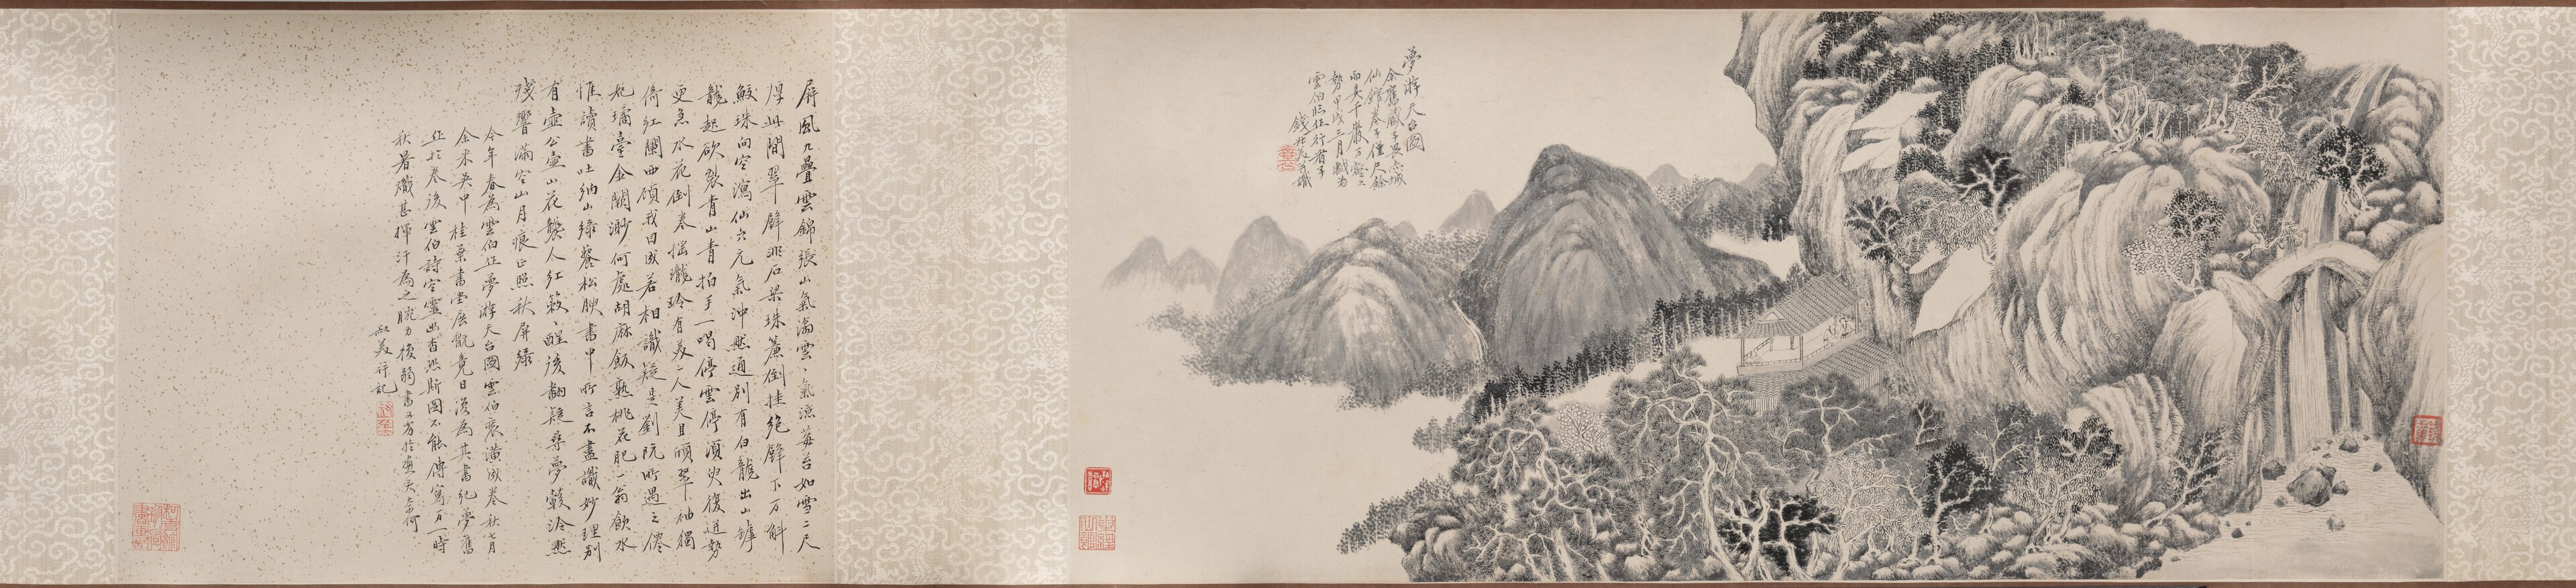 夢游天台圖
余舊藏子畏赤城
仙館卷子僅尺餘
而具千巖萬壑之
勢甲戌三月戲為
雲伯臨仿行者
錢杜并識
屏風九疊雲錦張山氣瀜雲雲氣涼莓苔如雪二尺
厚此間翠壁非石梁珠簾倒挂絕壁下萬斛
鮫珠向空瀉仙穴元氣沖然通別有白龍出山罅
龍起欲裂青山青拍手一喝停雲停須臾復進勢
更急水花倒卷搖瓏玲有美一人美且頎翠袖獨
倚紅闌西碩我回頭若相識疑是劉阮所遇之僊
妃璚臺金闕渺何處胡麻飯熟桃花肥一翁飲水
惟讀書吐納山綠餐松腴書中所言不盡識妙理別
有壺公壺山花鬘人紅簌簌醒後翻疑尋夢轂泠然
殘響滿空山月痕正照秋屏綠
今年春為雲伯作夢游天台圖雲伯裝潢成卷秋七月
余來吳中桂葉書堂展翫竟日復為其書紀夢舊
作於卷後雲伯詩空靈幽杳恐斯圖不能傳寫萬一時
秋暑熾甚揮汗為之腕力復弱書不省於畫夫奈何
叔美并記